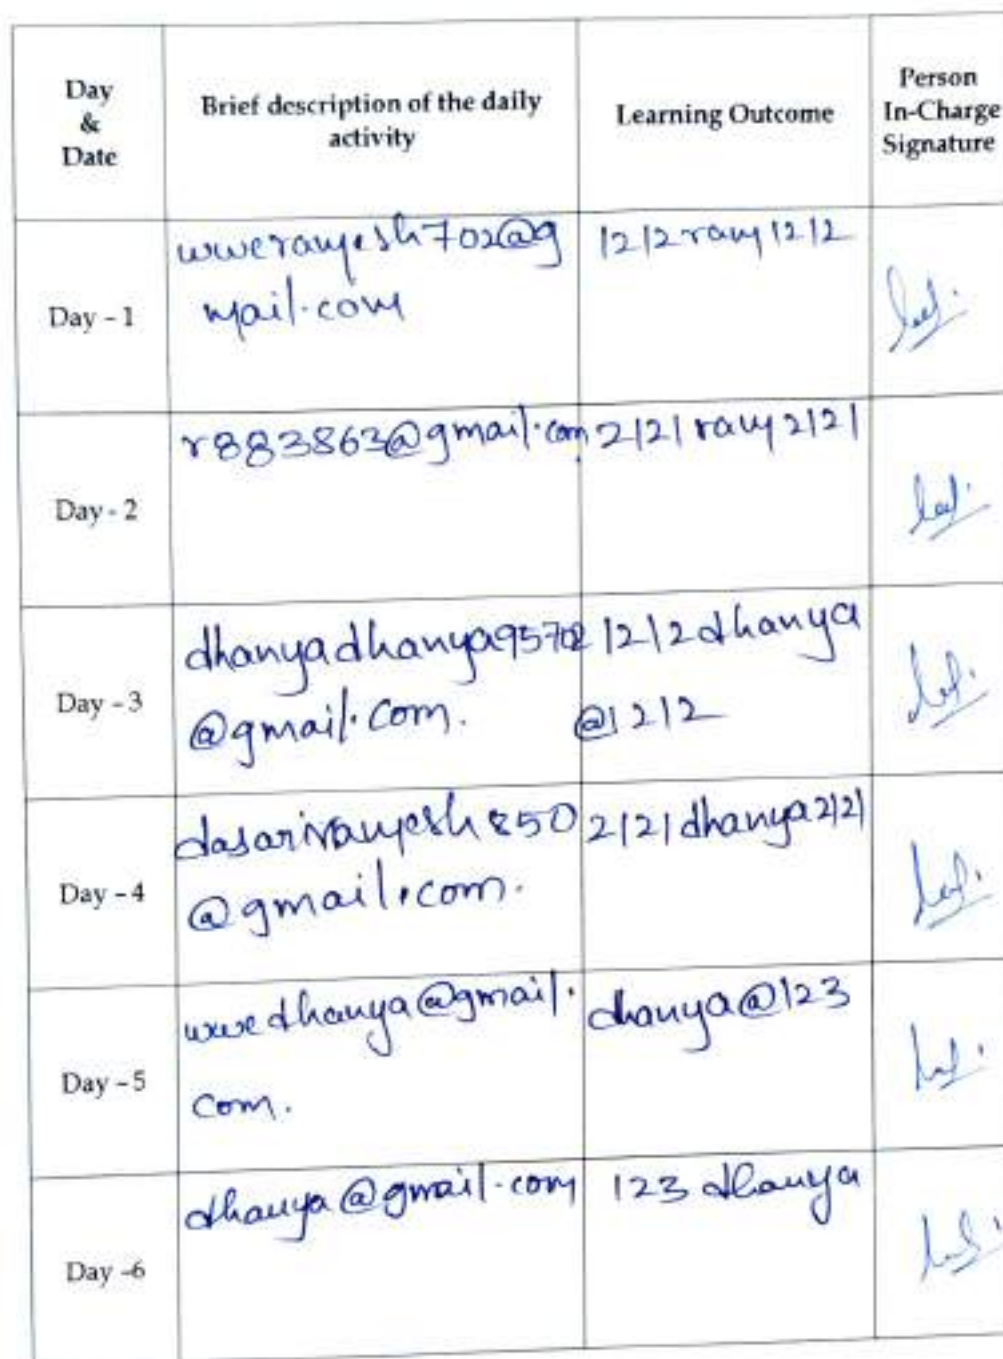 Day
&
Date
Brief description of the daily
activity
Learning Outcome
Person
In-Charge
Signature
Day – 1
wweramesh702@g
mail.com
1212ram1212
Day - 2
r883863@gmail.com
2121ram2121
Day – 3
dhanyadhanya95702
@gmail.com.
1212dhanya
@1212
Day – 4
dasariramesh850
@gmail.com.
2121dhanya2121
Day – 5
wwedhanya@gmail.
com.
dhanya@123
Day –6
dhanya@gmail.com
123 dhanya